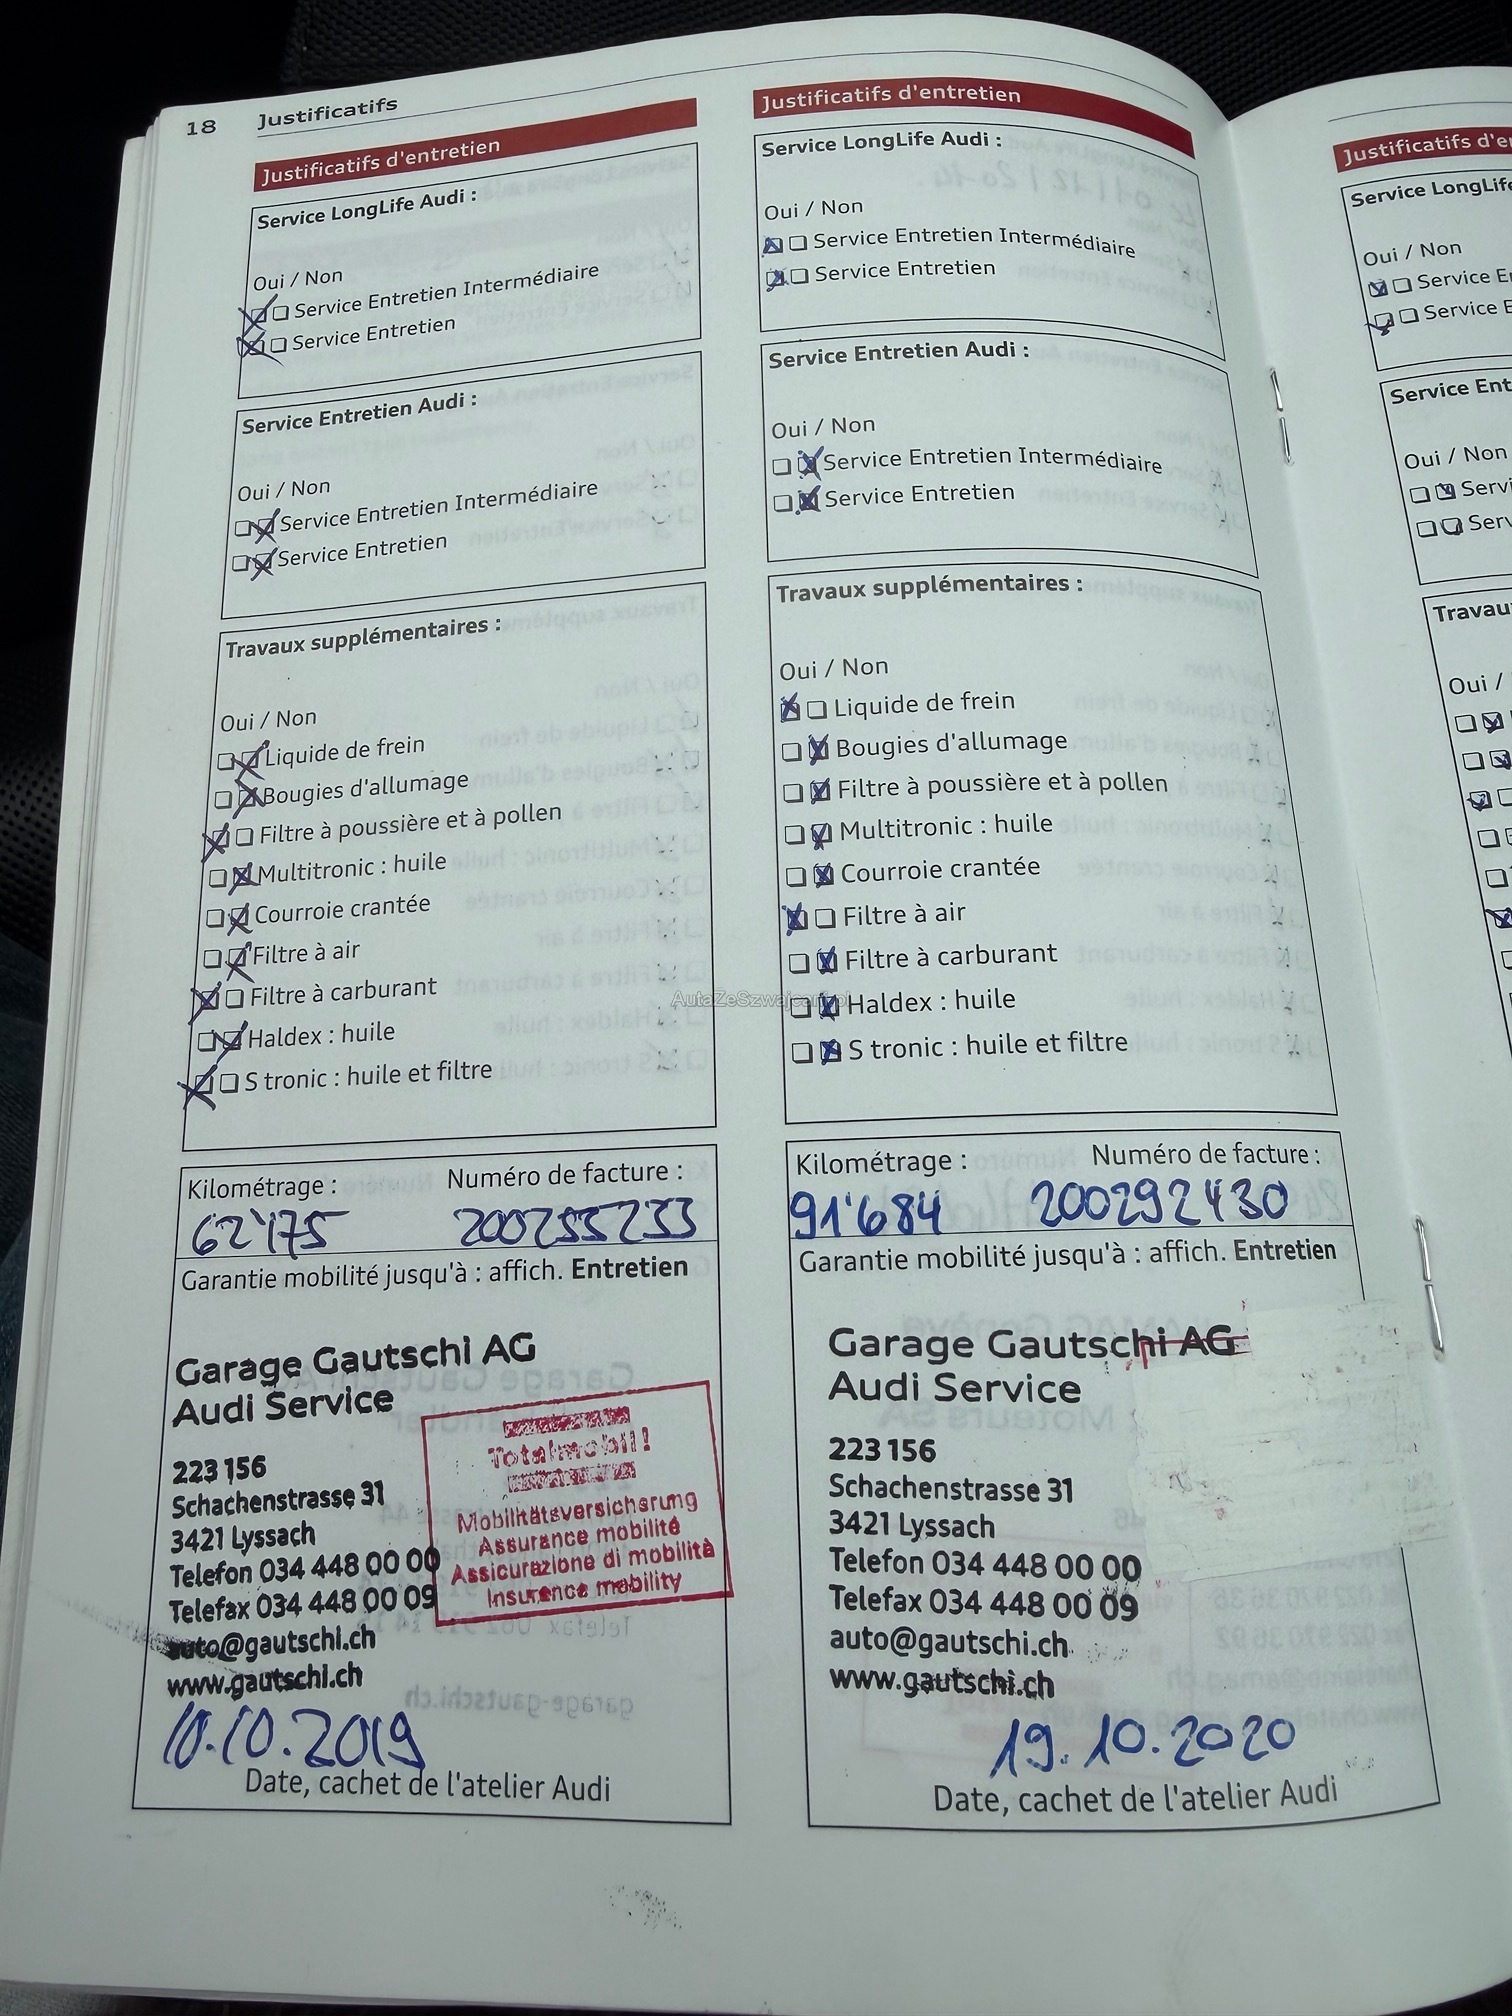 18 Justificatifs
Justificatifs d'entretien
Service LongLife Audi :
Oui / Non
Service Entretien Intermédiaire
Service Entretien
Service Entretien Audi :
Oui / Non
Service Entretien Intermédiaire
Service Entretien
Travaux supplémentaires :
Oui / Non
Liquide de frein
Bougies d'allumage
Filtre à poussière et à pollen
Multitronic : huile
Courroie crantée
Filtre à air
Filtre à carburant
Haldex : huile
S tronic : huile et filtre
Kilométrage : Numéro de facture :
62'175 200255233
Garantie mobilité jusqu'à : affich. Entretien
Garage Gautschi AG
Audi Service
223 156
Schachenstrasse 31
3421 Lyssach
Telefon 034 448 00 00
Telefax 034 448 00 09
auto@gautschi.ch
www.gautschi.ch
Totalmobil!
Mobilitätsversicherung
Assurance mobilité
Assicurazione di mobilità
Insurence mobility
10.10.2019
Date, cachet de l'atelier Audi
Justificatifs d'entretien
Service LongLife Audi :
Oui / Non
Service Entretien Intermédiaire
Service Entretien
Service Entretien Audi :
Oui / Non
Service Entretien Intermédiaire
Service Entretien
Travaux supplémentaires :
Oui / Non
Liquide de frein
Bougies d'allumage
Filtre à poussière et à pollen
Multitronic : huile
Courroie crantée
Filtre à air
Filtre à carburant
Haldex : huile
S tronic : huile et filtre
Kilométrage : Numéro de facture :
91'684 200292430
Garantie mobilité jusqu'à : affich. Entretien
Garage Gautschi AG
Audi Service
223 156
Schachenstrasse 31
3421 Lyssach
Telefon 034 448 00 00
Telefax 034 448 00 09
auto@gautschi.ch
www.gautschi.ch
19.10.2020
Date, cachet de l'atelier Audi
AutaZeSzwajcarii.pl
Justificatifs d'e
Service LongLife
Oui / Non
Service E
Service E
Service Ent
Oui / Non
Servi
Serv
Travau
Oui /